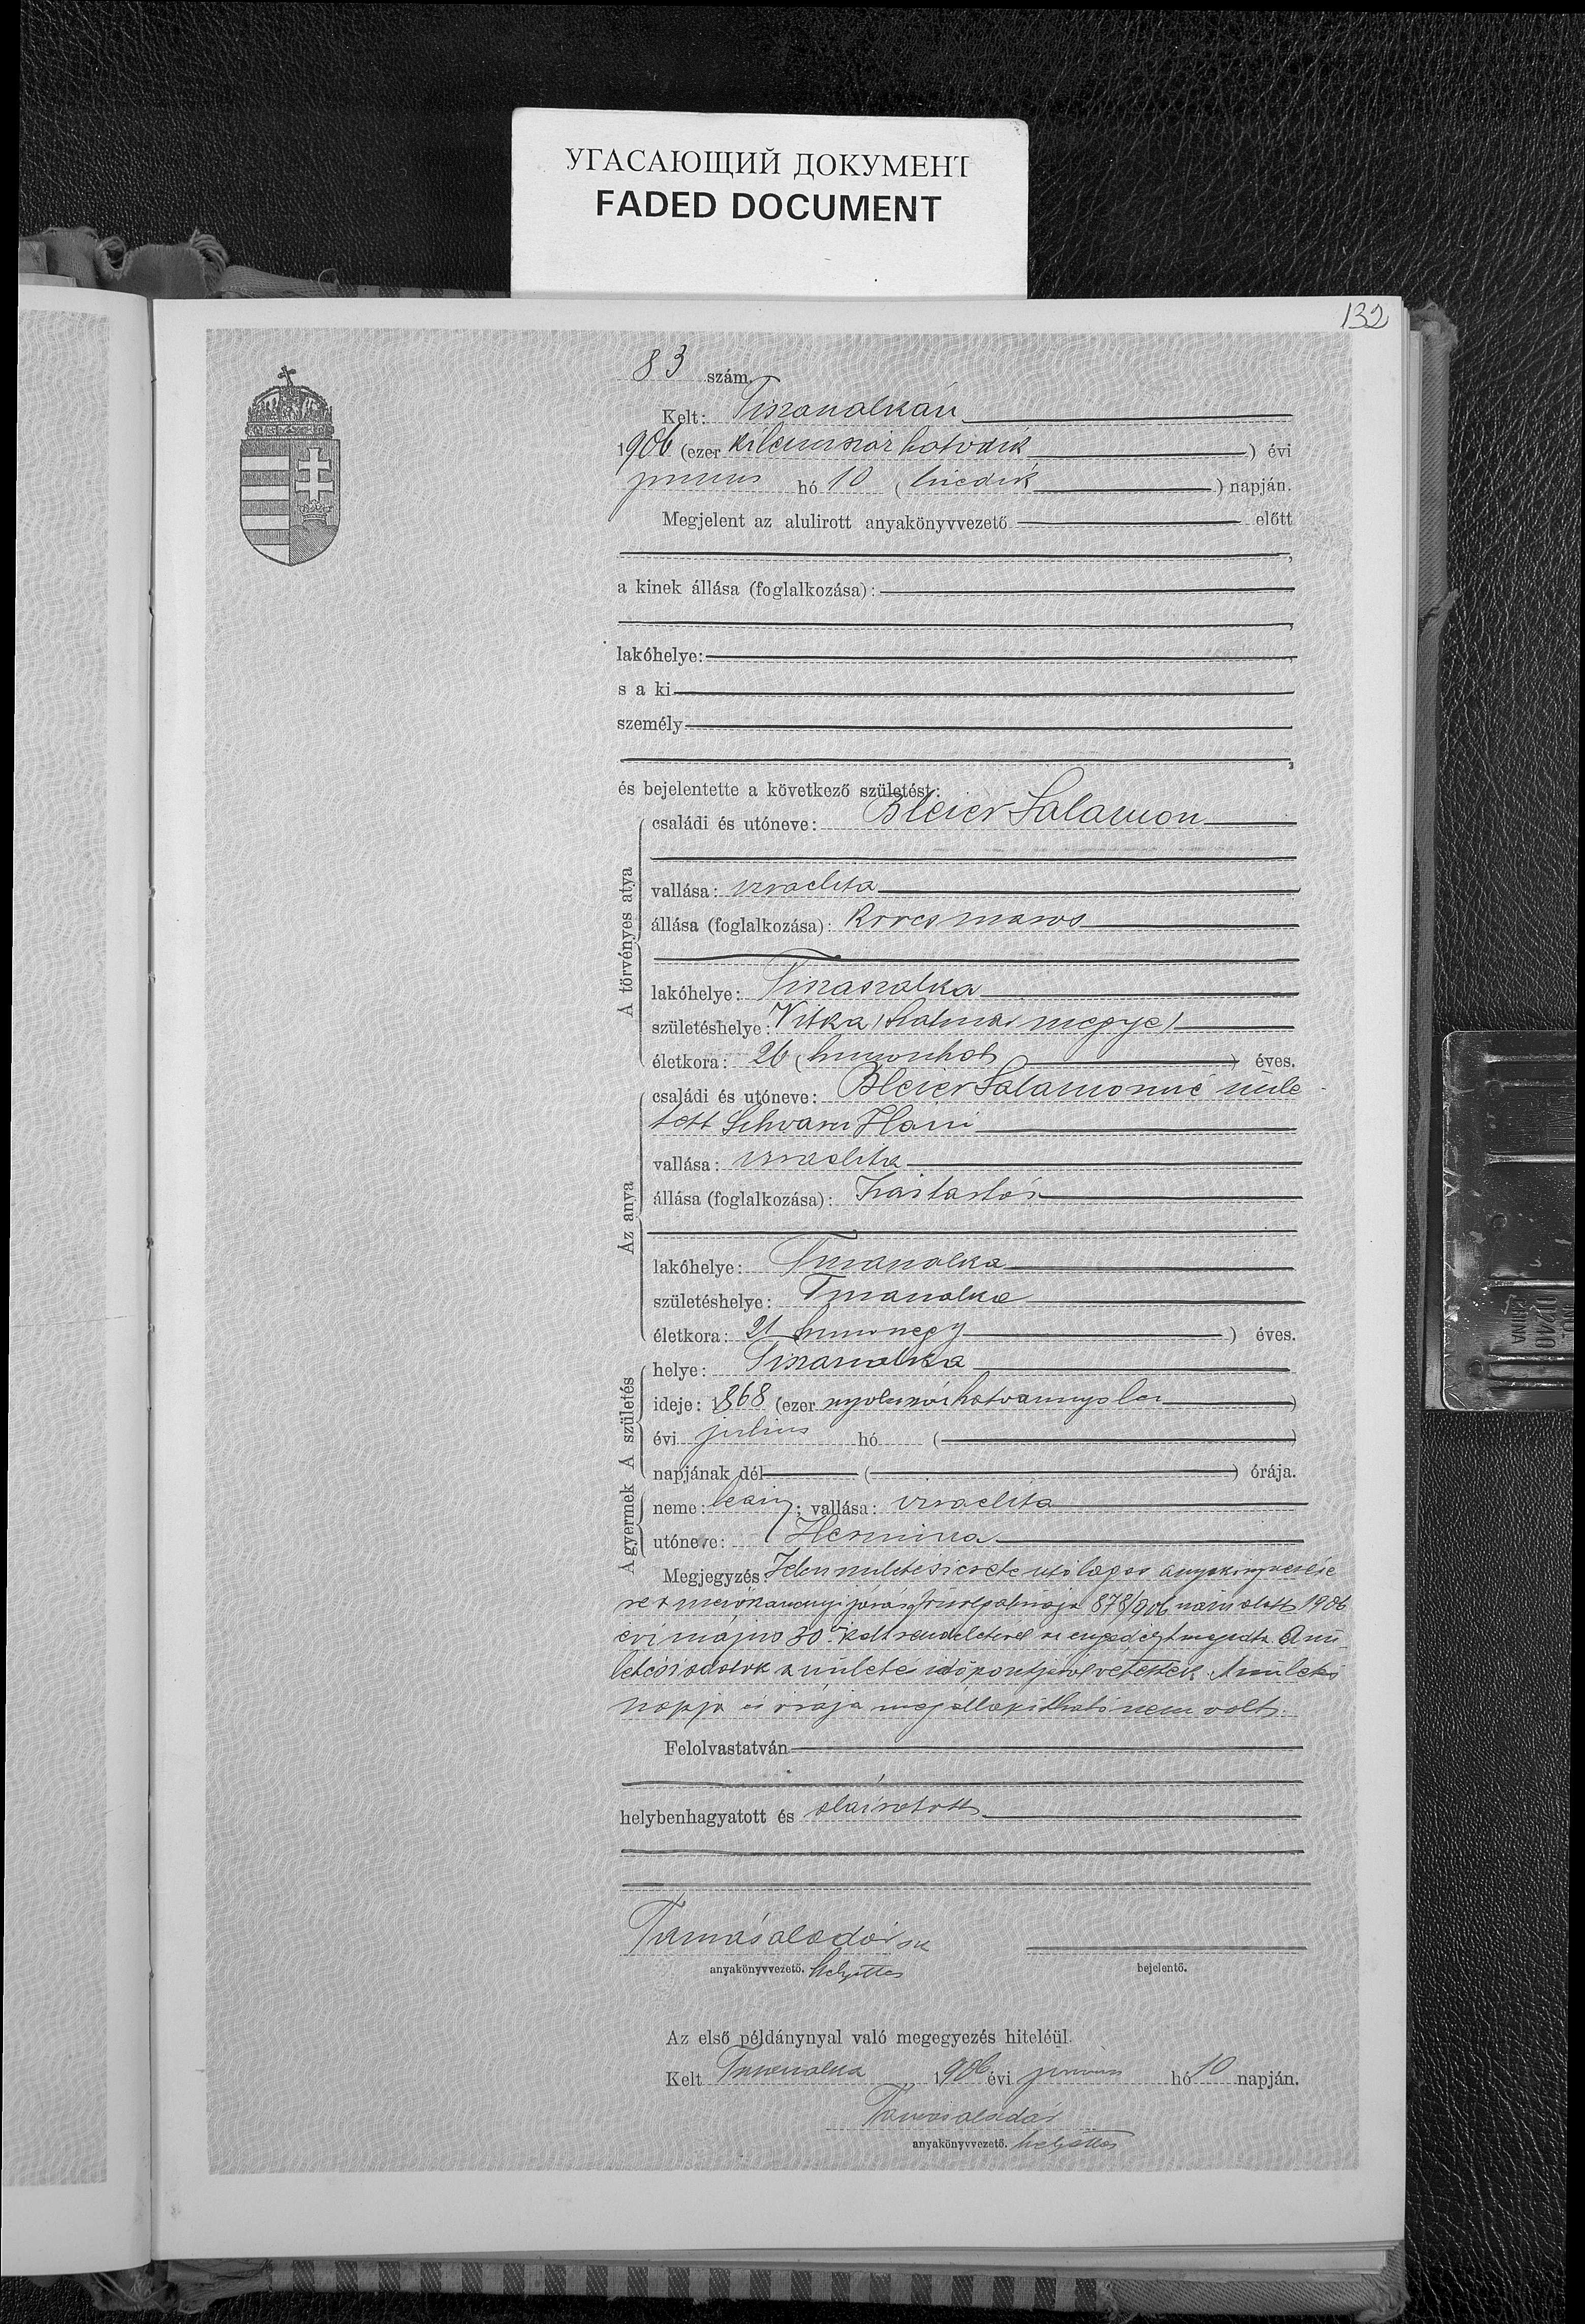 УГАСАЮЩИЙ ДОКУМЕНТ
FADED DOCUMENT
132
83 szám.
Kelt: Tiszaszalkán
1906 (ezer kilencszáz hatodik) évi
junius hó 10 (tizedik) napján.
Megjelent az alulirott anyakönyvvezető előtt
a kinek állása (foglalkozása):
lakóhelye:
s a ki
személy
és bejelentette a következő születést:
A törvényes atya
családi és utóneve: Bleier Salamon
vallása: izraelita
állása (foglalkozása): korcsmáros
lakóhelye: Tiszaszalka
születéshelye: Vitka (Szatmár megye)
életkora: 26 (huszonhat) éves.
Az anya
családi és utóneve: Bleier Salamonné szüle
tett Schvarz Hani
vallása: izraelita
állása (foglalkozása): háztartás
lakóhelye: Tiszaszalka
születéshelye: Tiszaszalka
életkora: 21 huszonegy) éves.
A születés
helye: Tiszaszalka
ideje: 1868 (ezer nyolcszázhatvannyolc)
évi julius hó ( )
napjának dél ( ) órája.
A gyermek
neme: leány; vallása: izraelita
utóneve: Hermina
Megjegyzés: Jelen születési esete utólagos anyakönyvezésé
re a mezőkaszonyi járás főszolgabirája 878/906 szám alatt 1906
évi május 30 kelt rendeletével az engedélyt megadta. A szü
letési adatok a születés időpontjáról vétettek. A születés
napja és órája megállapitható nem volt.
Felolvastatván
helybenhagyatott és aláiratott
Tamás Aladár sk
anyakönyvvezető. helyettes
bejelentő.
Az első példánynyal való megegyezés hiteléül.
Kelt Tiszaszalka 1906 évi junius hó 10 napján.
Tamás Aladár
anyakönyvvezető. helyettes